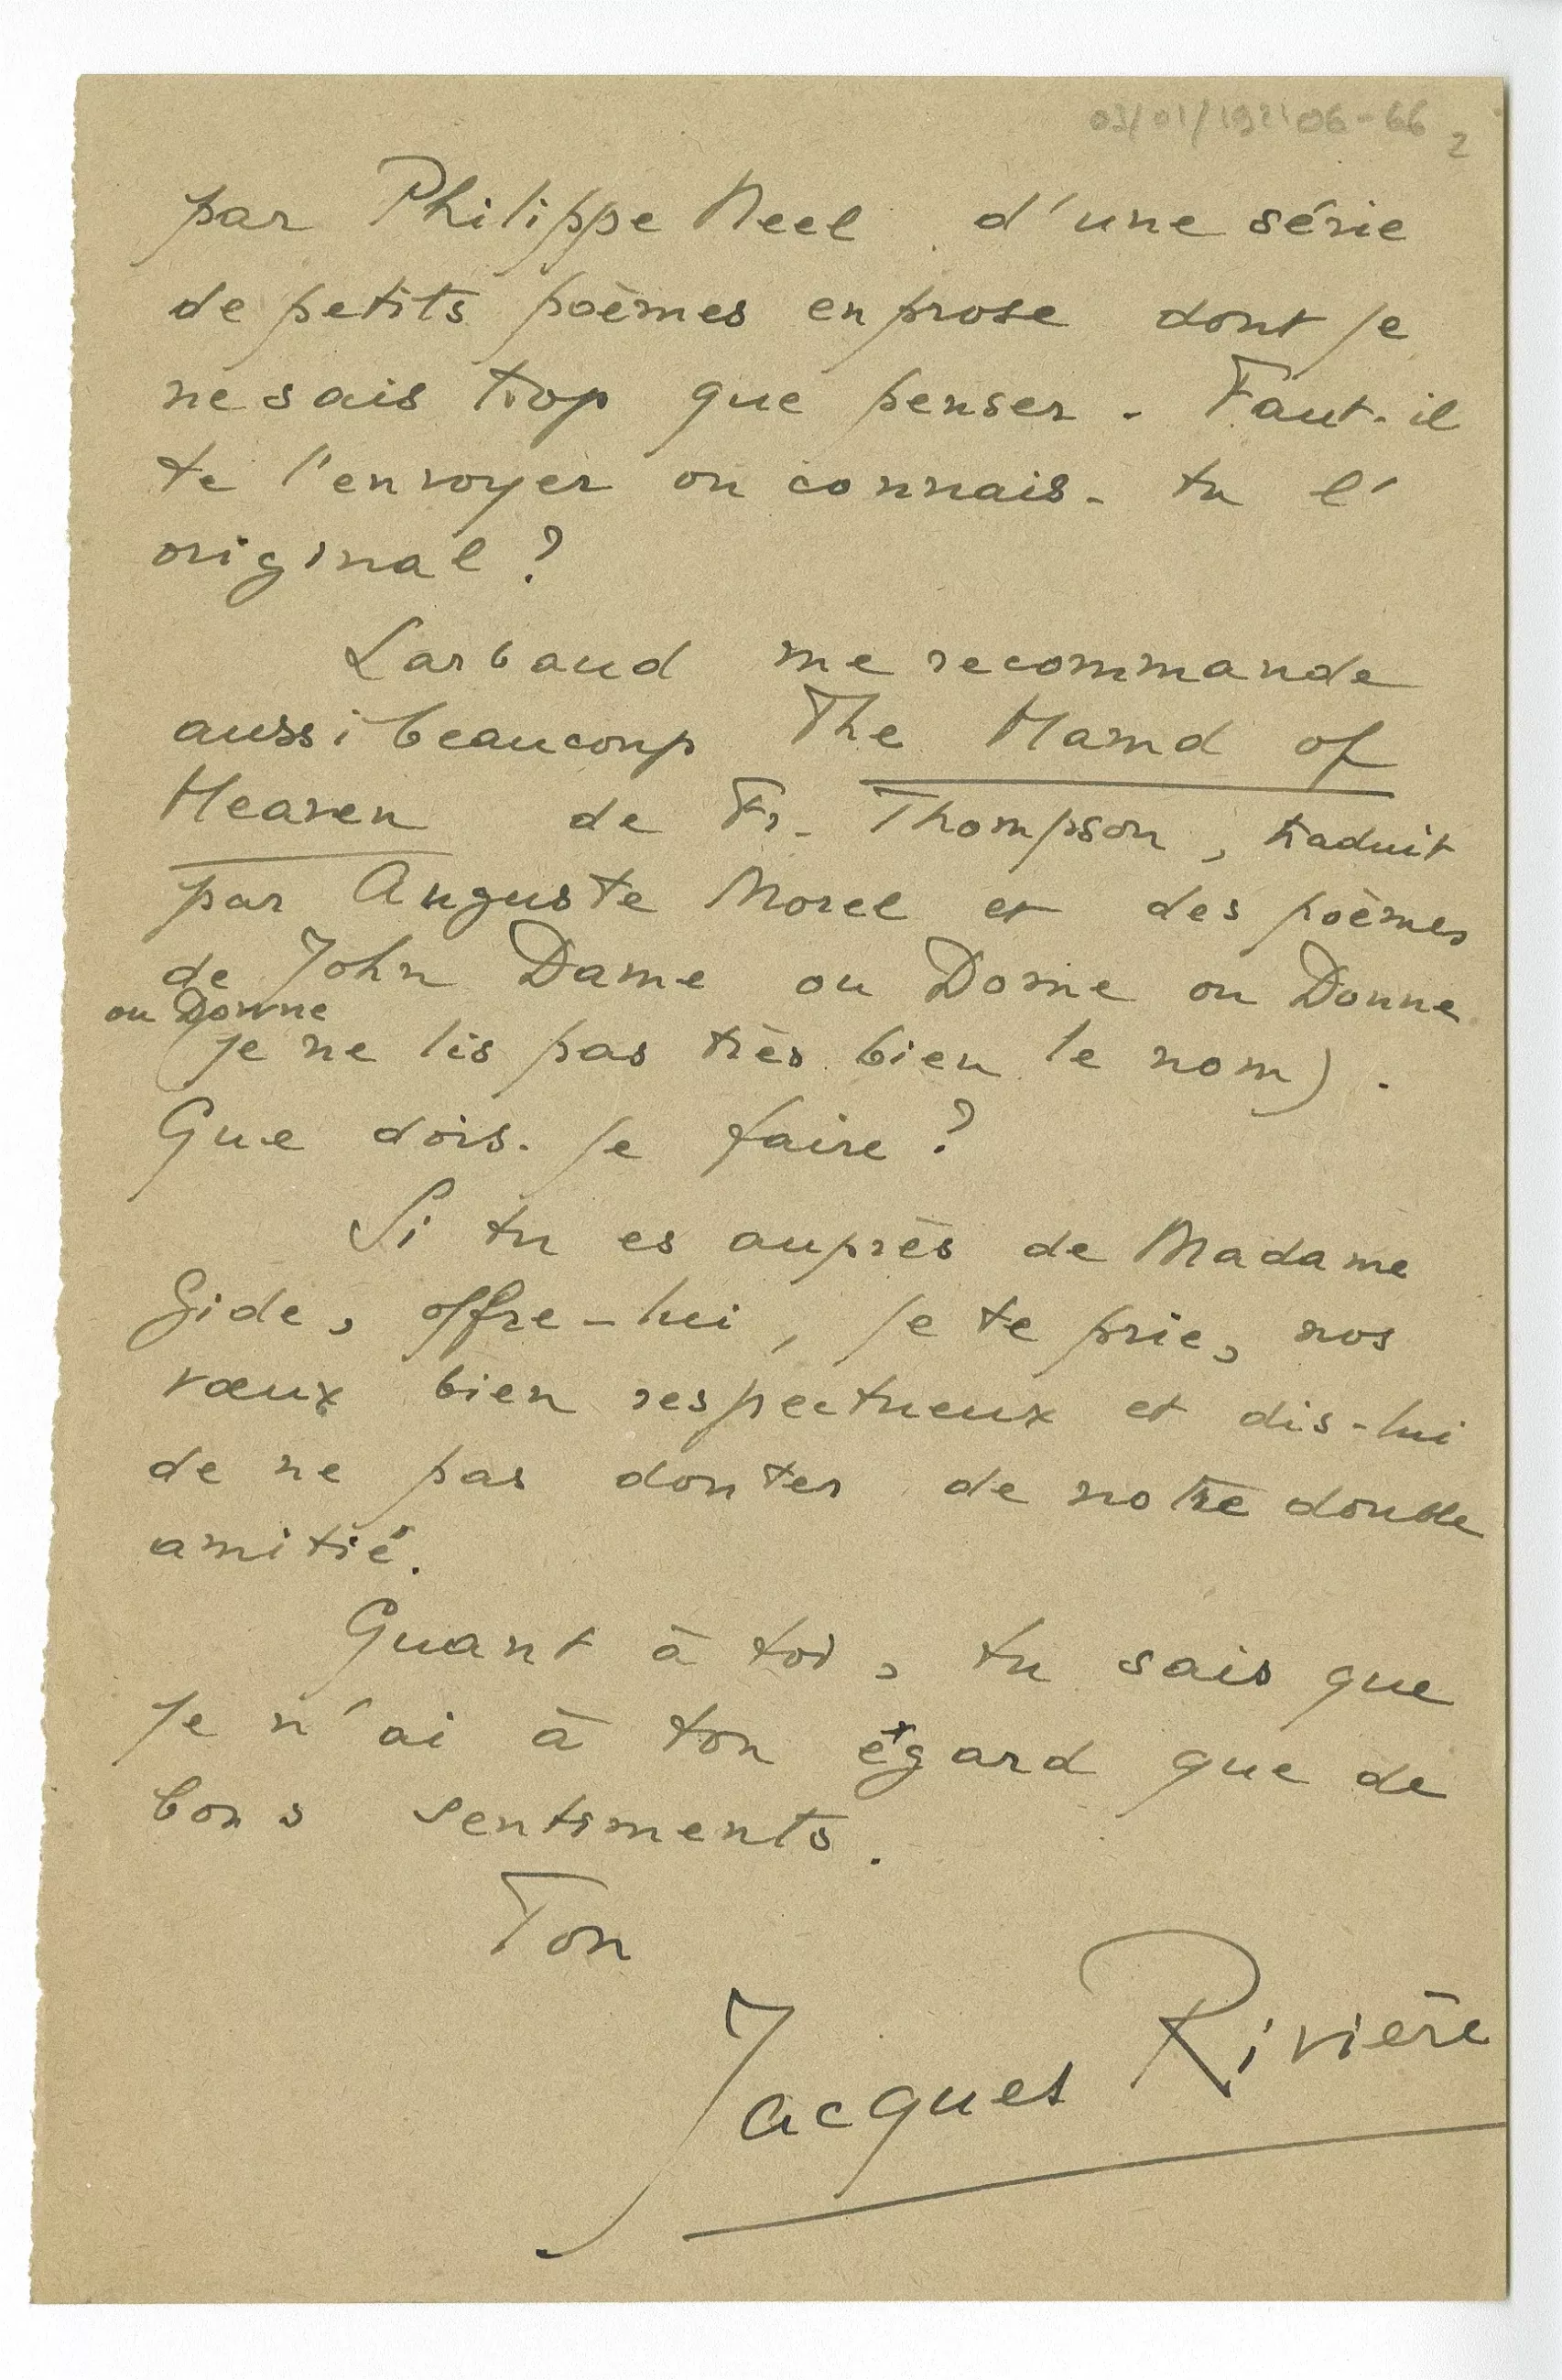 2
par Philippe Neel d'une série
de petits poèmes en prose dont je
ne sais trop que penser. Faut-il
te l'envoyer ou connais-tu l'
original ?
Larbaud me recommande
aussi beaucoup The Hamd of
Heaven de Fr. Thompson, traduit
par Auguste Morel et des poèmes
de John Dame ou Dorne ou Donne
ou Downe
(je ne lis pas très bien le nom).
Que dois-je faire ?
Si tu es auprès de Madame
Gide, offre-lui, je te prie, nos
vœux bien respectueux et dis-lui
de ne pas douter de notre double
amitié.
Quant à toi, tu sais que
je n'ai à ton égard que de
bons sentiments.
Ton
Jacques Rivière